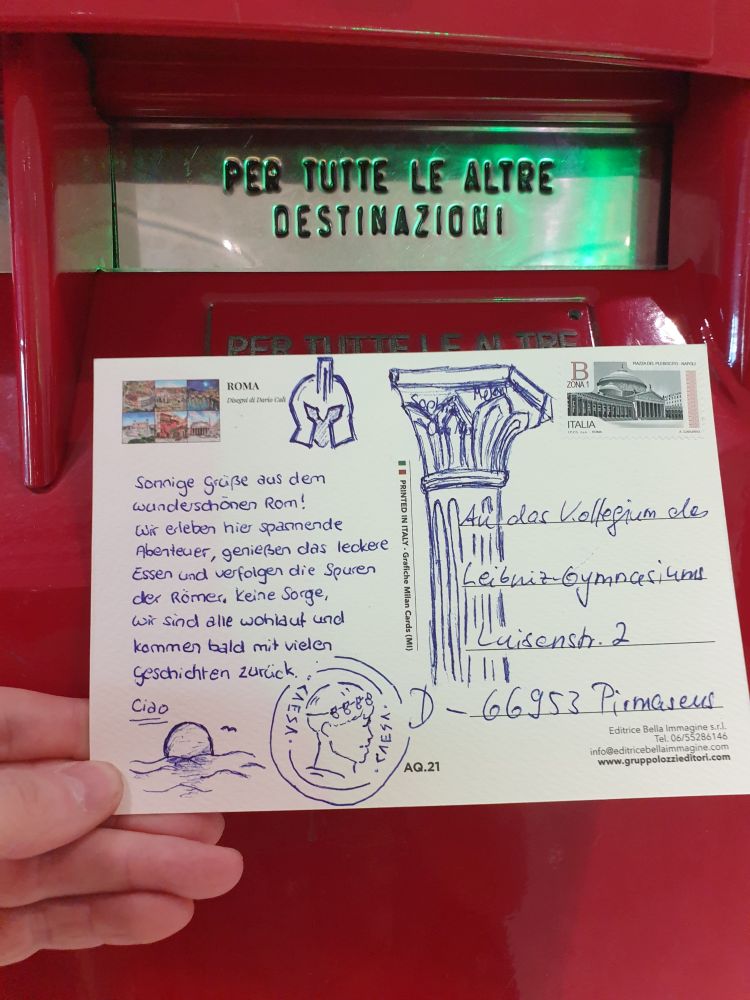 PER TUTTE LE ALTRE
DESTINAZIONI
PER TUTTE LE ALTRE
ROMA
Disegni di Dario Cali
Sonnige Grüße aus dem
wunderschönen Rom!
Wir erleben hier spannende
Abenteuer, genießen das leckere
Essen und verfolgen die Spuren
der Römer. Keine Sorge,
wir sind alle wohlauf und
kommen bald mit vielen
Geschichten zurück.
Ciao
CAESA
CAESA
AQ.21
PRINTED IN ITALY - Grafiche Milan Cards (MI)
B
ZONA 1
PIAZZA DEL PLEBISCITO - NAPOLI
ITALIA
An das Kollegium des
Leibniz-Gymnasiums
Luisenstr. 2
D - 66953 Pirmasens
Editrice Bella Immagine s.r.l.
Tel. 06/55286146
info@editricebellaimmagine.com
www.gruppolozzieditori.com